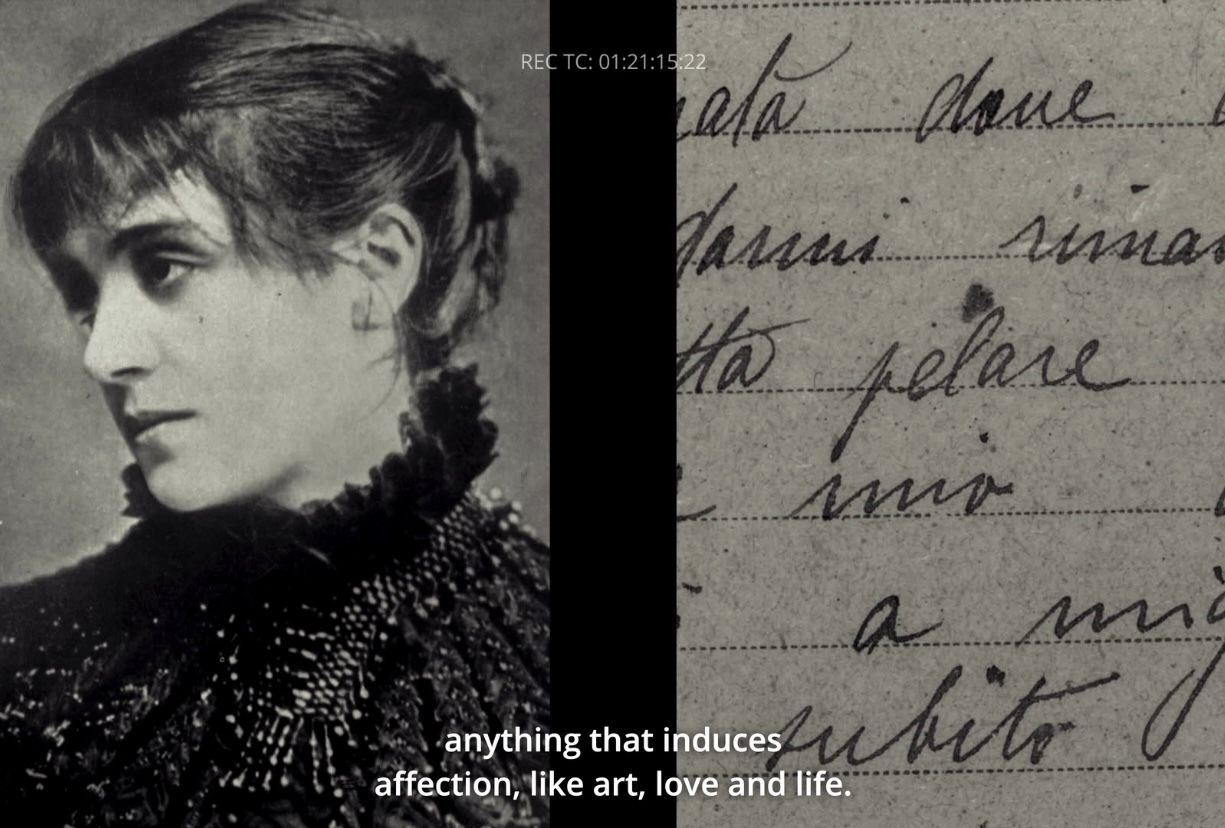 REC TC: 01:21:15:22
nata dove
darmi riman
tta pelare
e mio
a mig
subito
anything that induces
affection, like art, love and life.